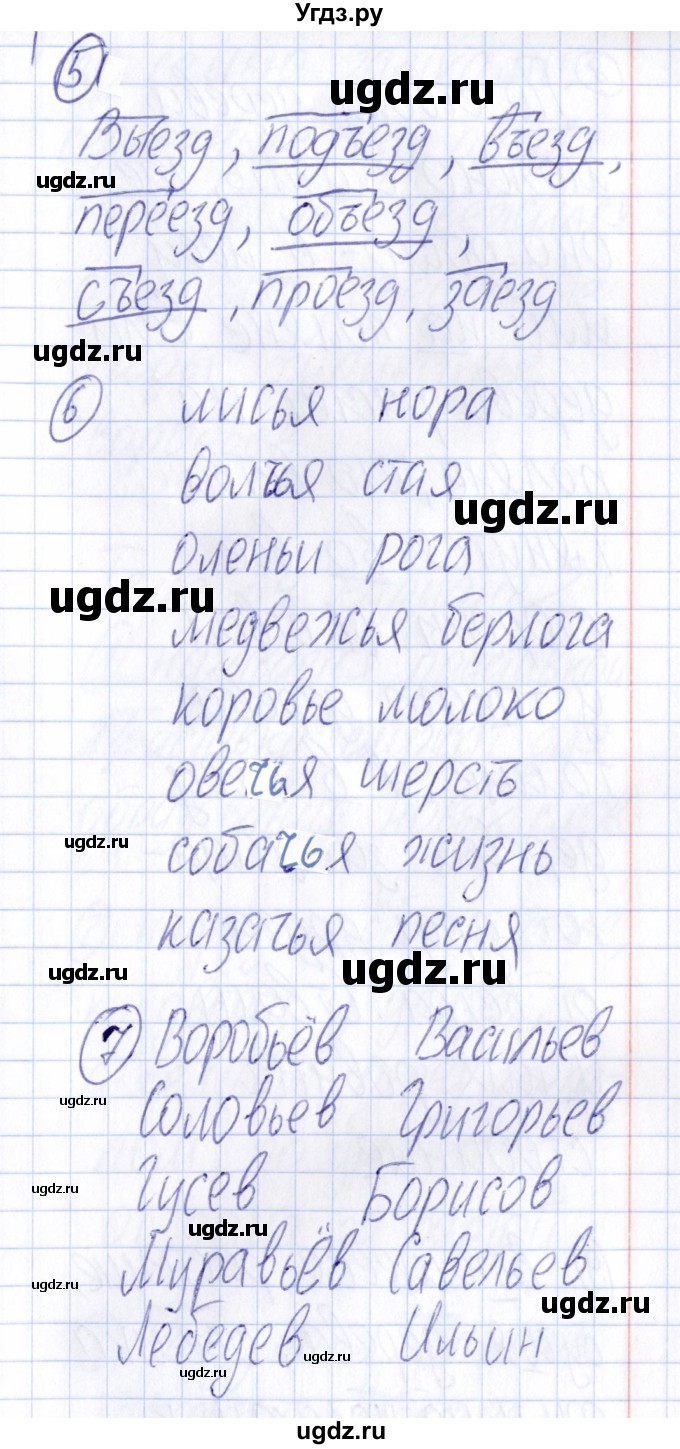 Угдз.ру
5
ugdz.ru
Выезд, подъезд, въезд,
ugdz.ru
переезд, объезд,
съезд, проезд, заезд
ugdz.ru
6 лисья нора
волчья стая
ugdz.ru
оленьи рога
ugdz.ru
медвежья берлога
коровье молоко
овечья шерсть
ugdz.ru
собачья жизнь
казачья песня
ugdz.ru
ugdz.ru
7 Воробьёв Васильев
ugdz.ru
Соловьев Григорьев
ugdz.ru
Гусев Борисов
ugdz.ru
Муравьёв Савельев
ugdz.ru
ugdz.ru
Лебедев Ильин
ugdz.ru
ugdz.ru
ugdz.ru